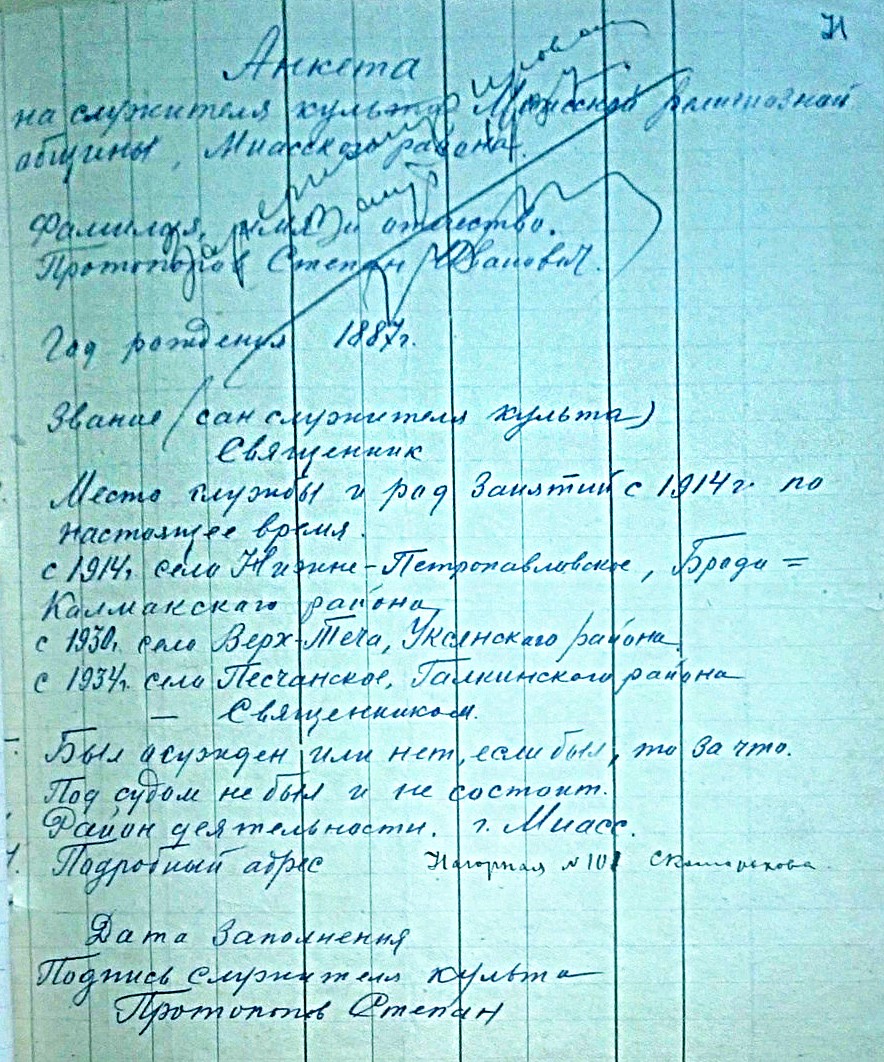 Анкета
на служителя культа Миасской религиозной
общины, Миасского района.
Фамилия, имя и отчество.
Протопопов Степан Иванович.
Год рождения 1887г.
Звание (сан служителя культа)
Священник
Место службы и род занятий с 1914г. по
настоящее время.
с 1914г. село Нижне-Петропавловское, Броди=
Калмакского района
с 1930г. село Верх-Теча, Уксянского района.
с 1934г. село Песчанское, Галкинского района
— Священником.
Был осужден или нет, если был, то за что.
Под судом не был и не состоит.
Район деятельности. г. Миасс.
Подробный адрес Нагорная №101
Дата заполнения
Подпись служителя культа
Протопопов Степан